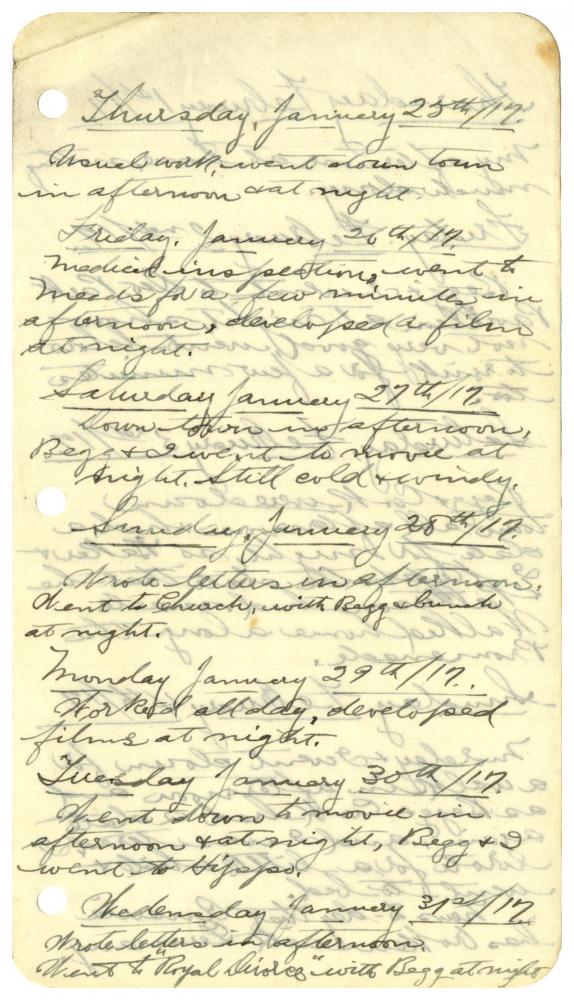 Thursday, January 25th/17.
Usual work, went down town
in afternoon & at night.
Friday, January 26th/17.
Medical inspection, went to
Meads for a few minutes in
afternoon, developed a film
at night.
Saturday January 27th/17.
Down town in afternoon,
Begg & I went to movie at
night. Still cold & windy.
Sunday, January 28th/17.
Wrote letters in afternoon.
Went to Church, with Begg & bunch
at night.
Monday January 29th/17.
Worked all day, developed
films at night.
Tuesday January 30th/17.
Went down to movie in
afternoon & at night, Begg & I
went to Hippo.
Wedensday January 31st/17
Wrote letters in afternoon.
Went to "Royal Divorce" with Begg at night